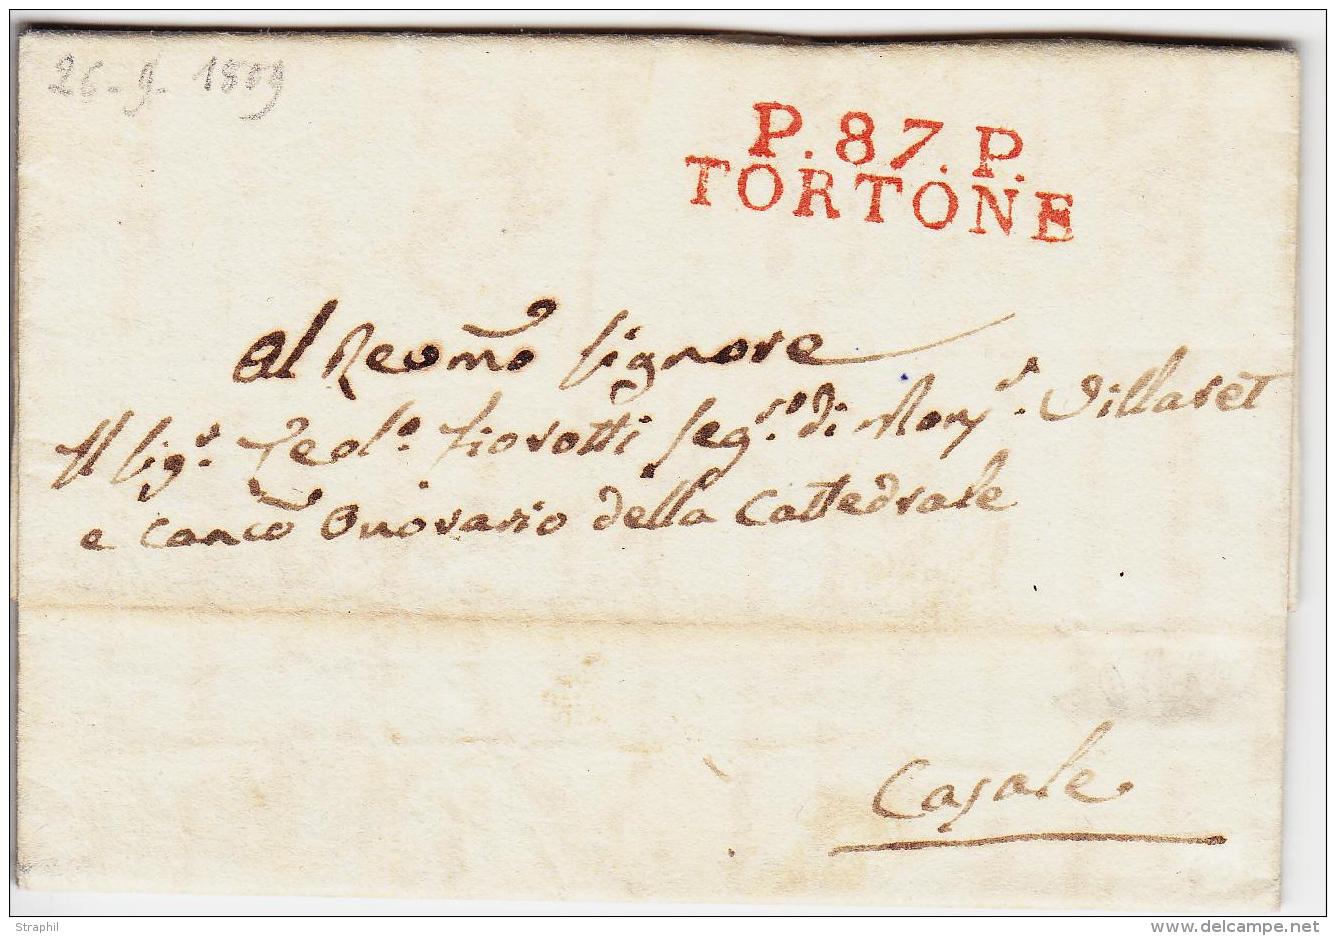 26-9-1809
P.87.P.
TORTONE
Al Revmo Signore
Il Sigr. Teolo. Fiorotti Segro. di Monsr. Villaret
e Canco Onorario della Cattedrale
Casale
Straphil
delcampe.net